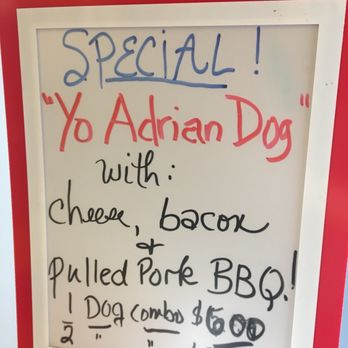 SPECIAL!
"Yo Adrian Dog"
with:
cheese, bacon
+
pulled Pork BBQ!
1/2 Dog combo $6.00
" "